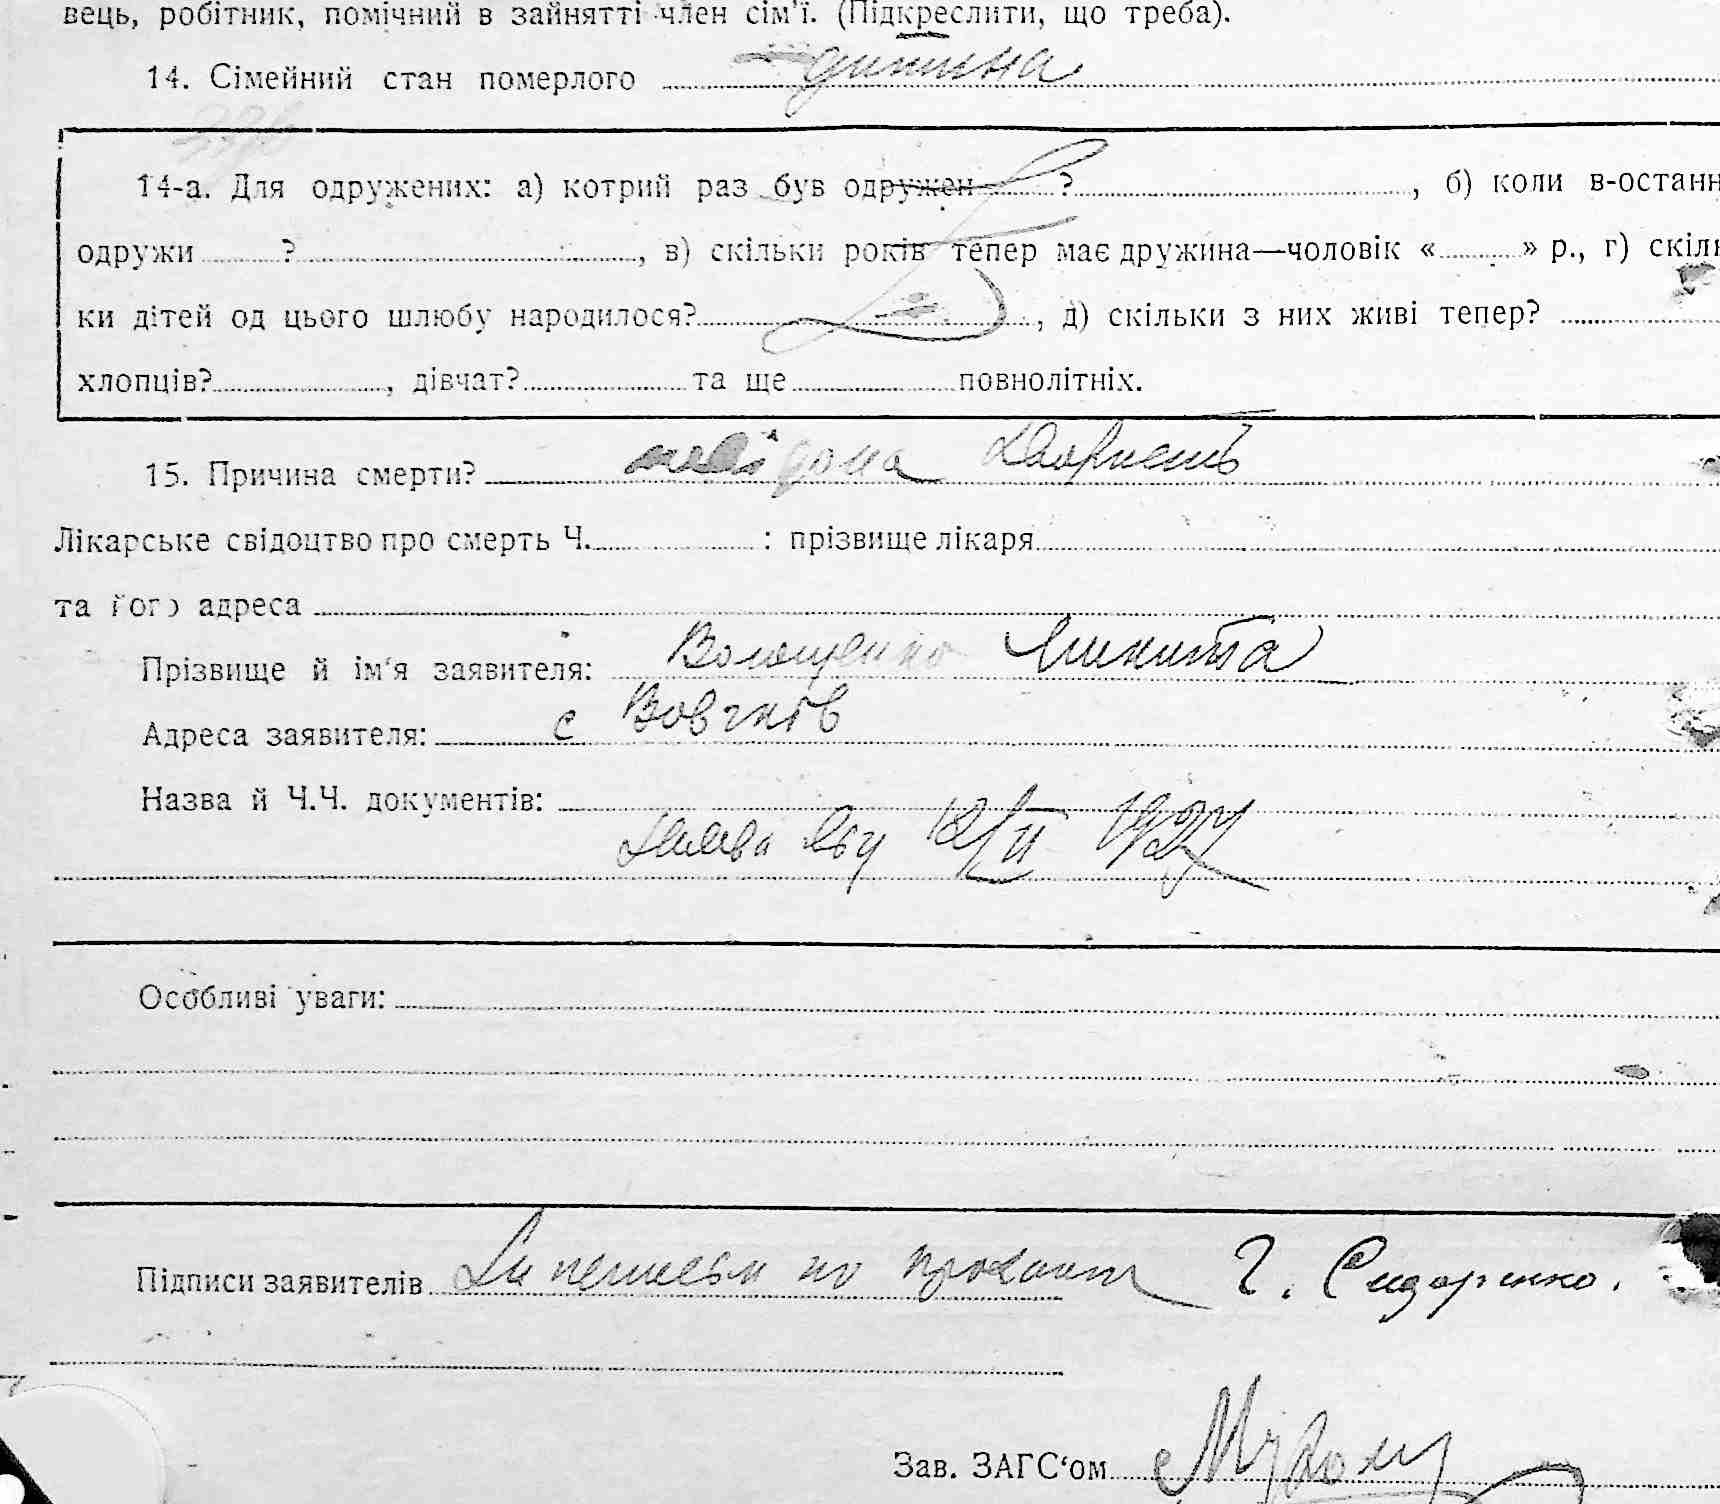 вець, робітник, помічний в зайнятті член сім'ї. (Підкреслити, що треба).
14. Сімейний стан померлого дитина
14-а. Для одружених: а) котрий раз був одружен ? , б) коли в-останн
одружи ? , в) скільки років тепер має дружина—чоловік « » р., г) скіль
ки дітей од цього шлюбу народилося? , д) скільки з них живі тепер?
хлопців? , дівчат? та ще повнолітніх.
15. Причина смерти? невідома
Лікарське свідоцтво про смерть Ч. : прізвище лікаря
та його адреса
Прізвище й ім'я заявителя: Волощенко Микита
Адреса заявителя: с Вовчків
Назва й Ч.Ч. документів:
Особливі уваги:
Підписи заявителів Г. Сидоренко.
Зав. ЗАГС'ом